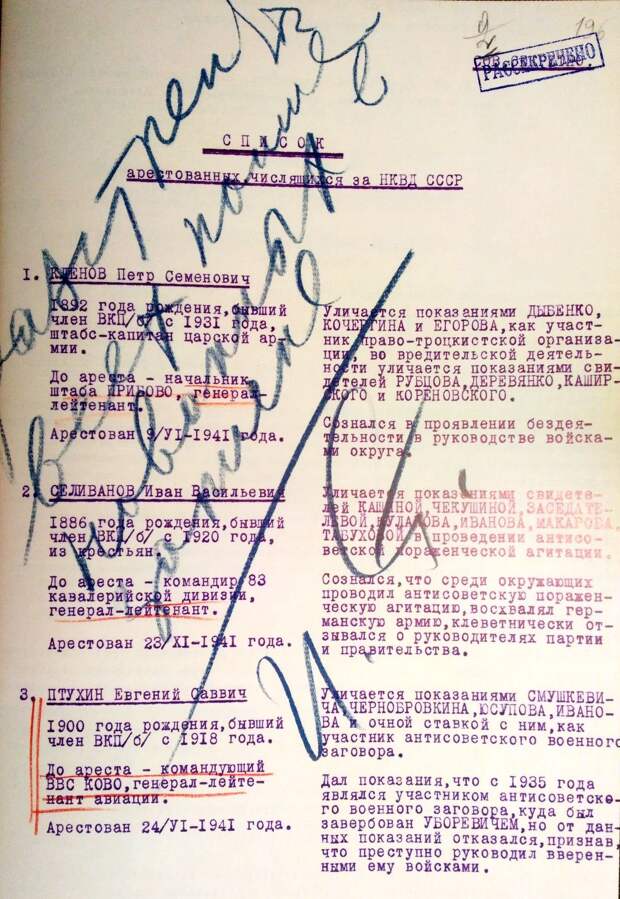 196
СПИСОК
арестованных,числящихся за НКВД СССР
1. КЛЕНОВ Петр Семенович
1892 года рождения,бывший
член ВКП/б/ с 1931 года,
штабс-капитан царской ар-
мии.
До ареста - начальник
штаба ПРИБОВО, генерал-
лейтенант.
Арестован 9/VI-1941 года.
Уличается показаниями ДЫБЕНКО,
КОЧЕРГИНА и ЕГОРОВА,как участ-
ник право-троцкистской организа-
ции, во вредительской деятель-
ности уличается показаниями сви-
детелей РУБЦОВА,ДЕРЕВЯНКО,КАШИР-
СКОГО и КОРЕНОВСКОГО.
Сознался в проявлении бездея-
тельности в руководстве войска-
ми округа.
2. СЕЛИВАНОВ Иван Васильевич
1886 года рождения,бывший
член ВКП/б/ с 1920 года,
из крестьян.
До ареста - командир 83
кавалерийской дивизии,
генерал-лейтенант.
Арестован 23/XI-1941 года.
Уличается показаниями свидете-
лей КАШИНОЙ,ЧЕКУШИНОЙ,ЗАСЕДАТЕ-
ЛЕВОЙ,БУЛАНОВА,ИВАНОВА,МАКАРОВА,
ТАБУХОВОЙ в проведении антисо-
ветской пораженческой агитации.
Сознался,что среди окружающих
проводил антисоветскую поражен-
ческую агитацию,восхвалял гер-
манскую армию,клеветнически от-
зывался о руководителях партии
и правительства.
3. ПТУХИН Евгений Саввич
1900 года рождения,бывший
член ВКП/б/ с 1918 года.
До ареста - командующий
ВВС КОВО,генерал-лейте-
нант авиации.
Арестован 24/VI-1941 года.
Уличается показаниями СМУШКЕВИ-
ЧА,ЧЕРНОБРОВКИНА,ЮСУПОВА,ИВАНО-
ВА и очной ставкой с ним,как
участник антисоветского военного
заговора.
Дал показания,что с 1935 года
являлся участником антисоветско-
го военного заговора,куда был
завербован УБОРЕВИЧЕМ,но от дан-
ных показаний отказался,признав,
что преступно руководил вверен-
ными ему войсками.
Расстрелять
всех поиме
нованных в
записке
И. Ст.